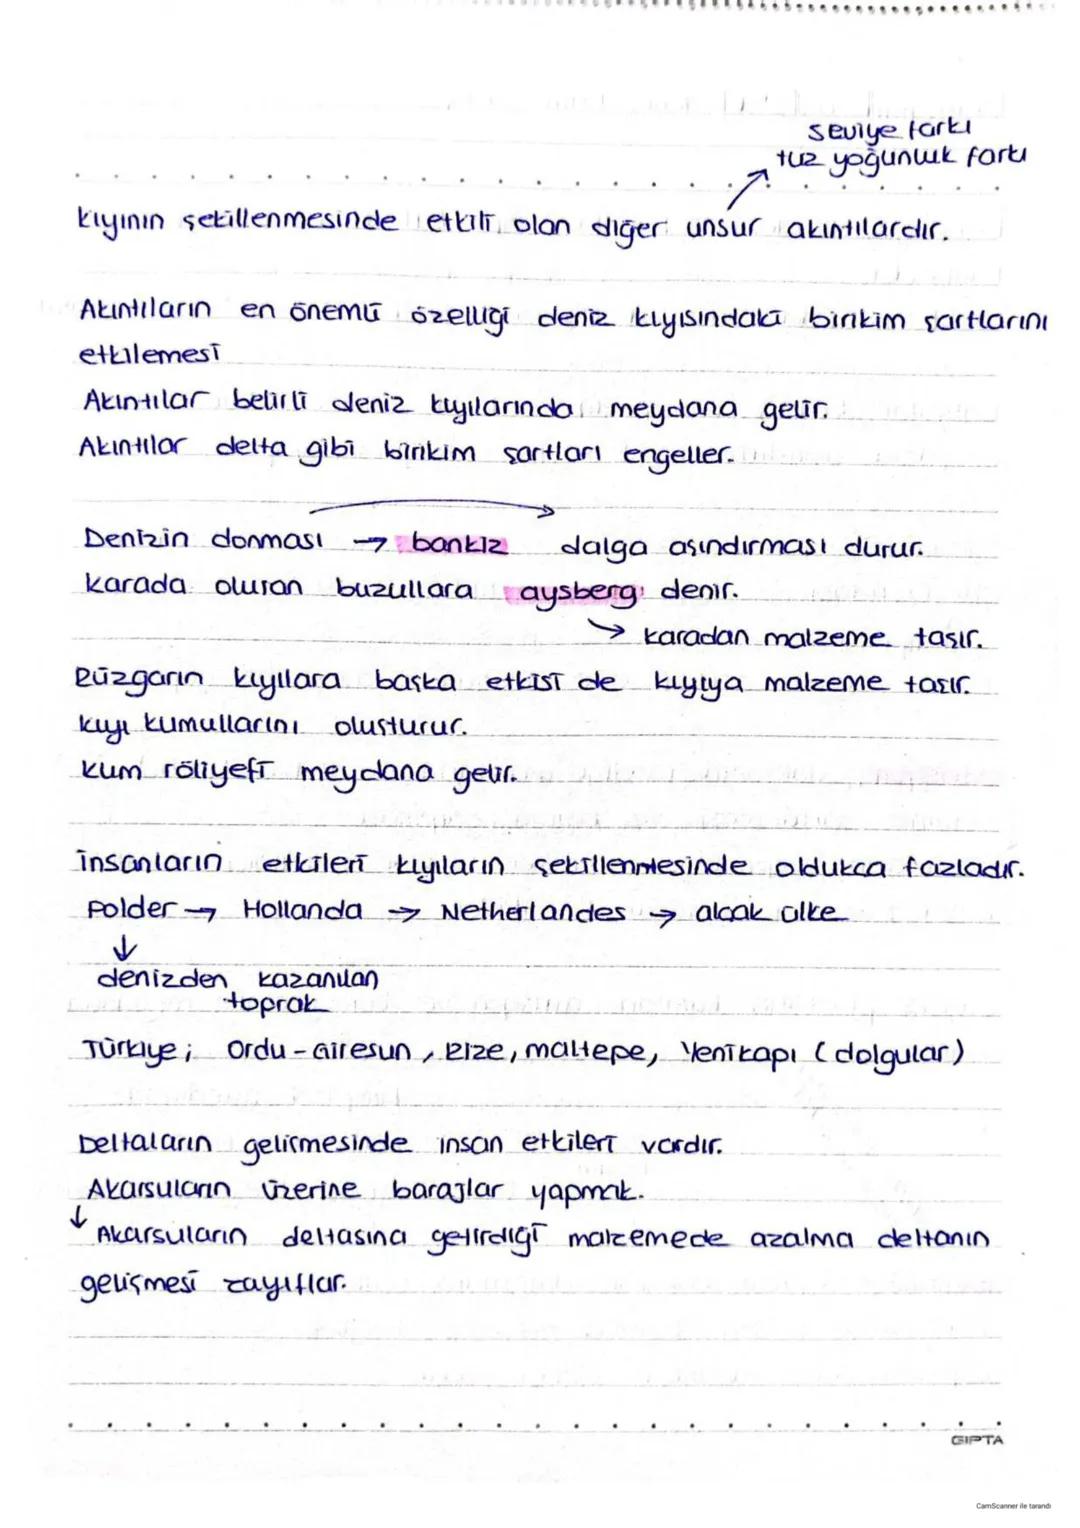 seviye farkı
tuz yoğunluk farkı
kıyının şekillenmesinde etkili olan diğer unsur akıntılardır.
Akıntıların en önemli özelliği deniz kıyısındaki birikim şartlarını
etkilemesi
Akıntılar belirli deniz kıyılarında meydana gelir.
Akıntılar delta gibi birikim şartları engeller.
Denizin donması → bankiz dalga aşındırması durur.
karada oluşan buzullara aysberg denir.
→ karadan malzeme taşır.
Rüzgarın kıyılara başka etkisi de kıyıya malzeme taşır.
kıyı kumullarını oluşturur.
kum röliyefi meydana gelir.
insanların etkileri kıyıların şekillenmesinde oldukça fazladır.
Polder → Hollanda → Netherlandes → alçak ülke
↓
denizden kazanılan
toprak
Türkiye; Ordu-Giresun, Rize, maltepe, Yenikapı (dolgular)
Deltaların gelişmesinde insan etkileri vardır.
Akarsuların üzerine barajlar yapmak.
↓ Akarsuların deltasına getirdiği malzemede azalma deltanın
gelişmesi zayıflar.
GIPTA
CamScanner ile tarandı